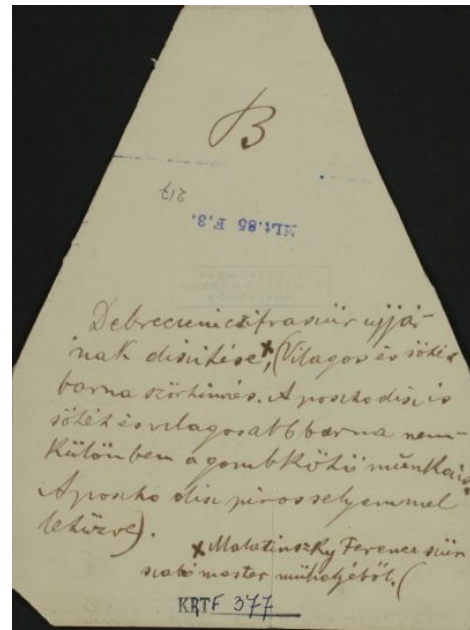 B
217
MLt.85 F,3.
Debreceni cifraszűr ujjá-
nak díszítése, x (Világos és sötét
barna szőrhímzés. A poszkodísz is
sötét és világosabb barna nem-
különben a gombkötő munka is.
A poszko dísz piros selyemmel
lehúzva).
x Malatinszky Ferenc szűr
szabó mester műhelyéből. (
KRTF 377